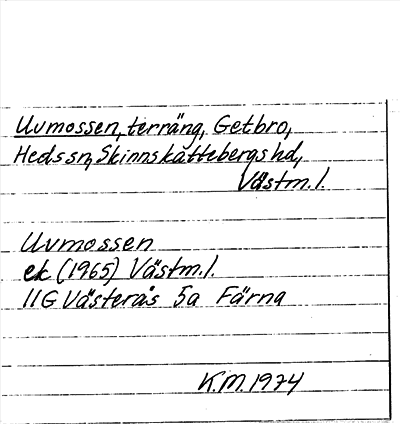 Uvmossen, terräng, Getbro,
Heds sn, Skinnskattebergs hd,
Västm. l.
Uvmossen
ek (1965) Västm. l.
11G Västerås 5a Färna
K.M. 1974